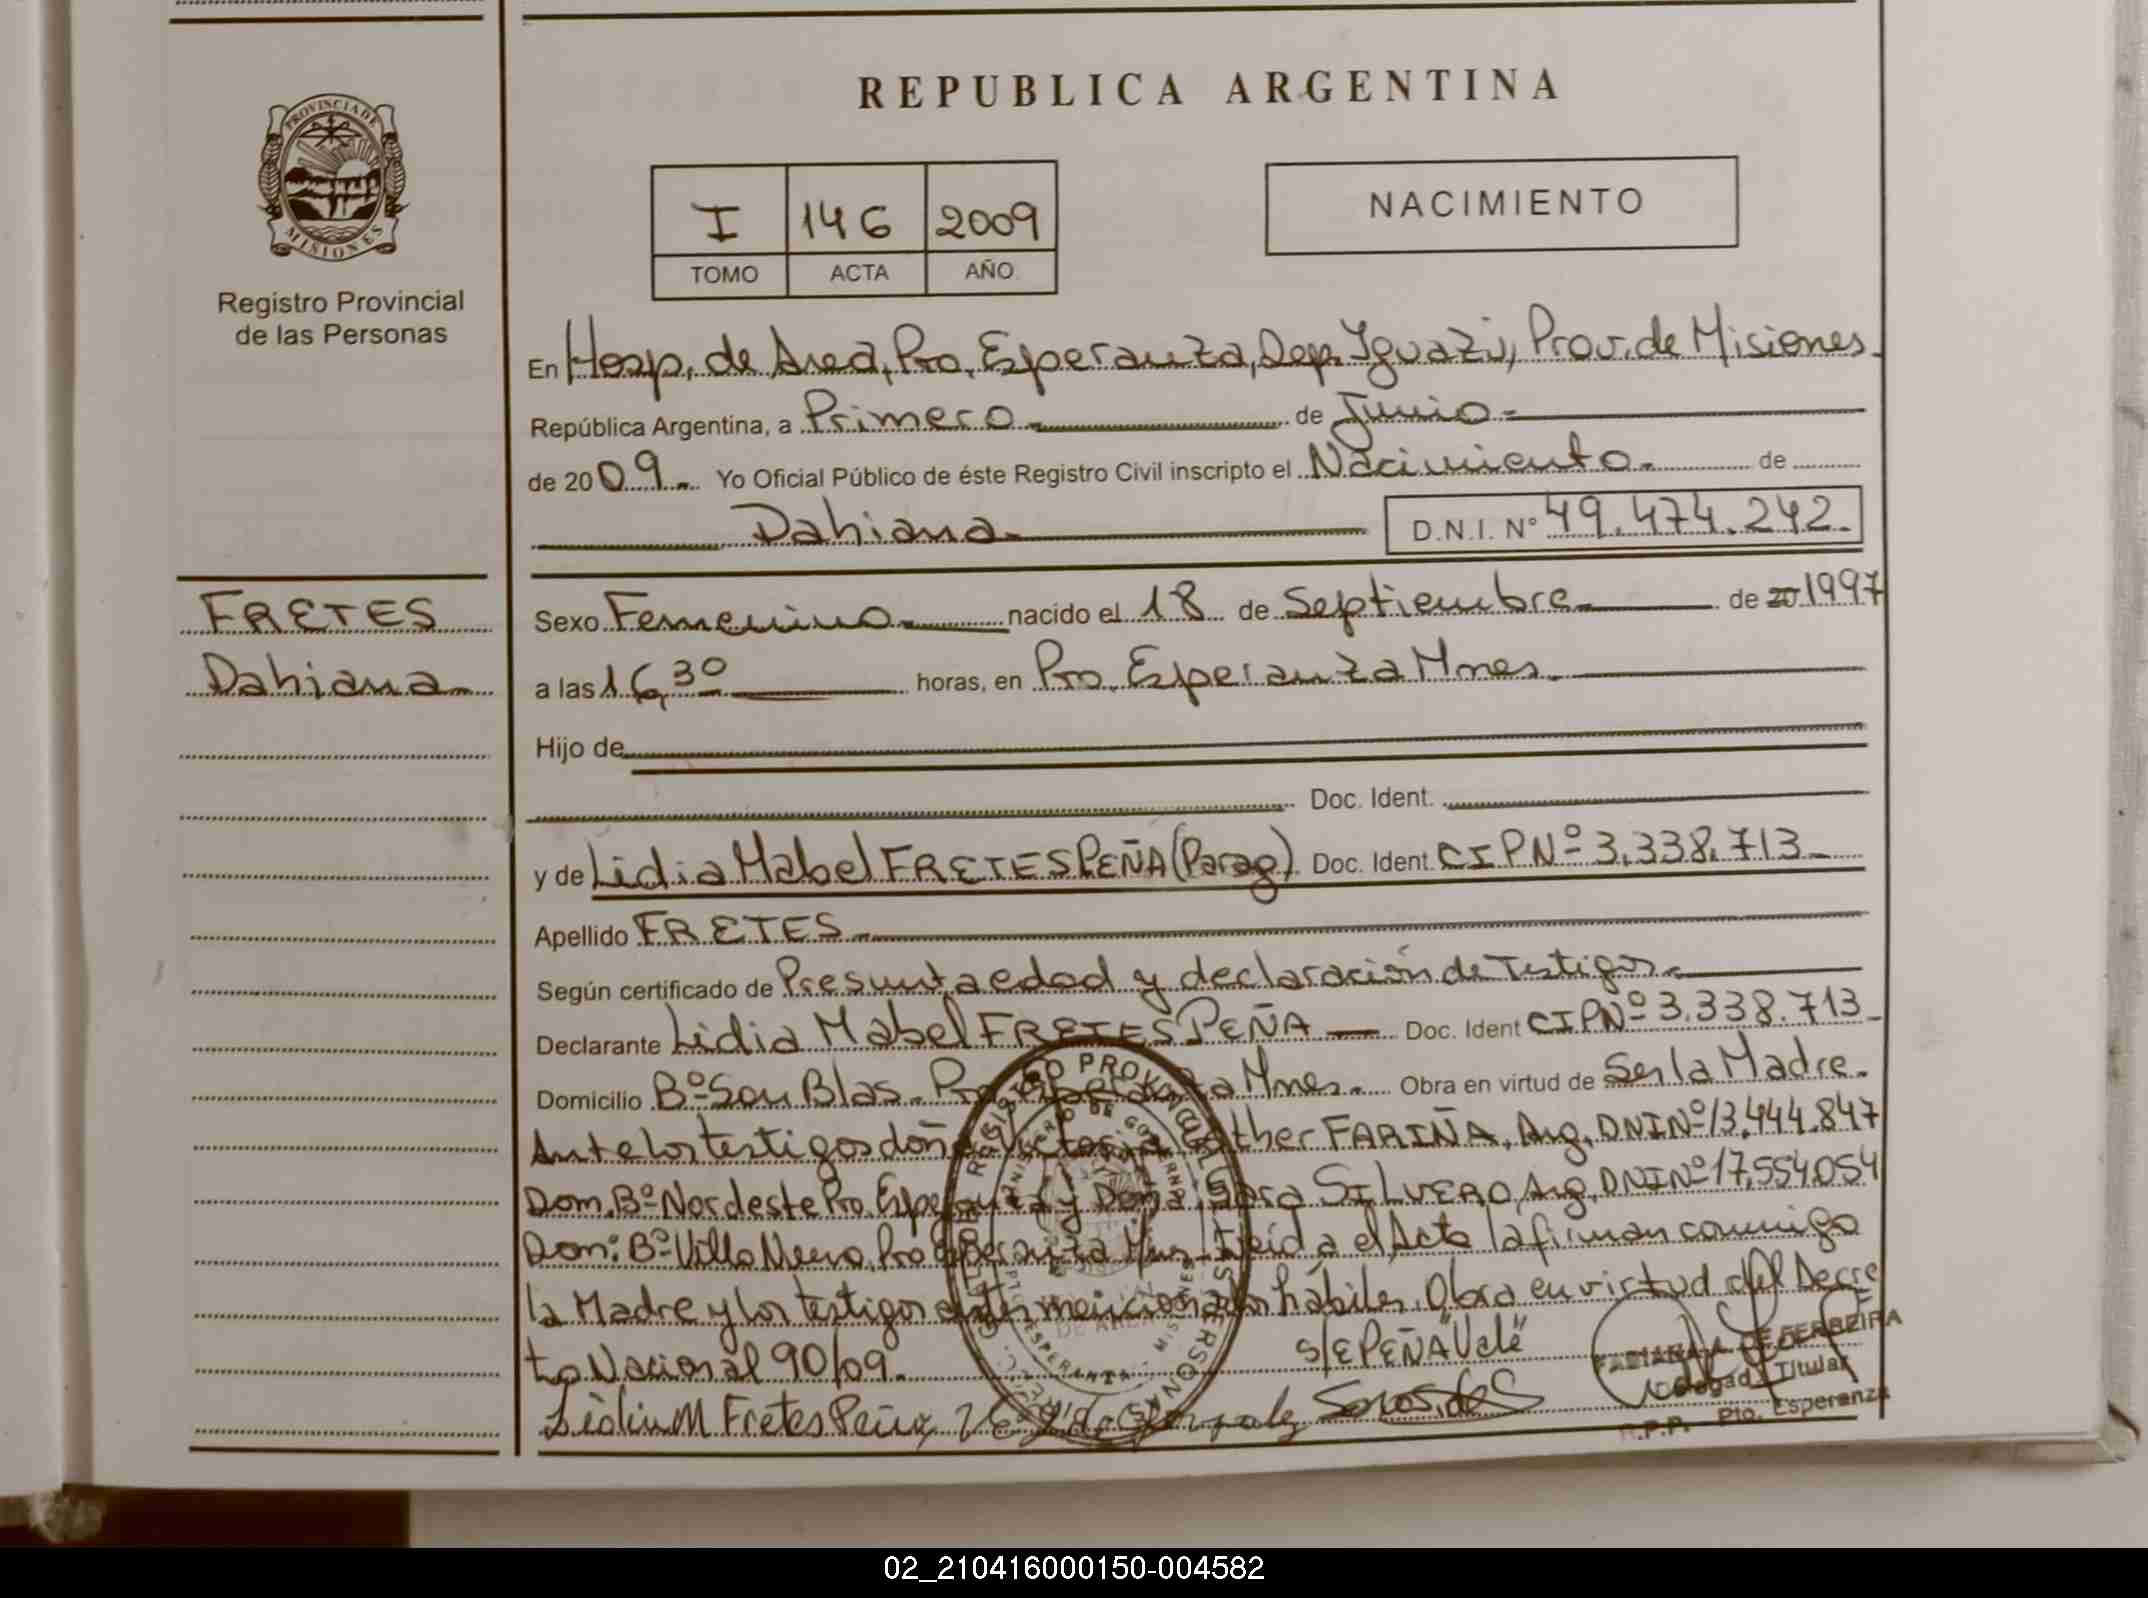 PROVINCIA DE
MISIONES
Registro Provincial
de las Personas
FRETES
Dahiana
REPUBLICA ARGENTINA
I 146 2009
TOMO ACTA AÑO
NACIMIENTO
En Hosp. de Area, Pto. Esperanza, Dep. Iguazú, Prov. de Misiones
República Argentina, a Primero de Junio
de 2009 Yo Oficial Público de éste Registro Civil inscripto el Nacimiento de
Dahiana D.N.I. Nº 49.474.242
Sexo Femenino nacido el 18 de Septiembre de 20 1997
a las 16,30 horas, en Pto. Esperanza Mnes.
Hijo de
Doc. Ident.
y de Lidia Mabel FRETES PEÑA (Parag) Doc. Ident. CIPNº 3.338.713
Apellido FRETES
Según certificado de Presunta edad y declaración de Testigos
Declarante Lidia Mabel FRETES PEÑA Doc. Ident CIPNº 3.338.713
Domicilio Bº San Blas. Pto Esperanza Mnes. Obra en virtud de Ser la Madre.
Ante los testigos doña FARIÑA, Arg, DNINº 13.444.847
Dom. Bº Nordeste Pto. Esperanza y Doña Sara SILVERO, Arg, DNINº 17.554.054
Dom: Bº Villa Nueva, Pto Esperanza Mnes Leída el Acta la firman conmigo
la Madre y los testigos antes mencionados hábiles. Obra en virtud del Decre
to Nacional 90/09. S/E PEÑA "Vale"
Lidia M Fretes Peña
DE FERREIRA
Delegada Titular
R.P.P. Pto. Esperanza
02_210416000150-004582